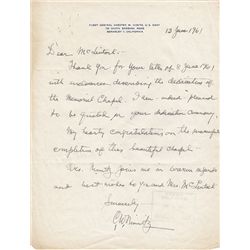 FLEET ADMIRAL CHESTER W. NIMITZ, U.S. NAVY
BERKELEY 8, CALIFORNIA
13 June 1961
Dear Mr. McClintock:
Thank you for your letter of 8 June 1961
with enclosures describing the dedication of
the Memorial Chapel. I am indeed pleased to
be quoted in your dedication ceremony.
My hearty congratulations on the
completion of this beautiful chapel.
Mrs. Nimitz joins me in warm regards
and best wishes to you and Mrs. McClintock
Sincerely,
C.W. Nimitz